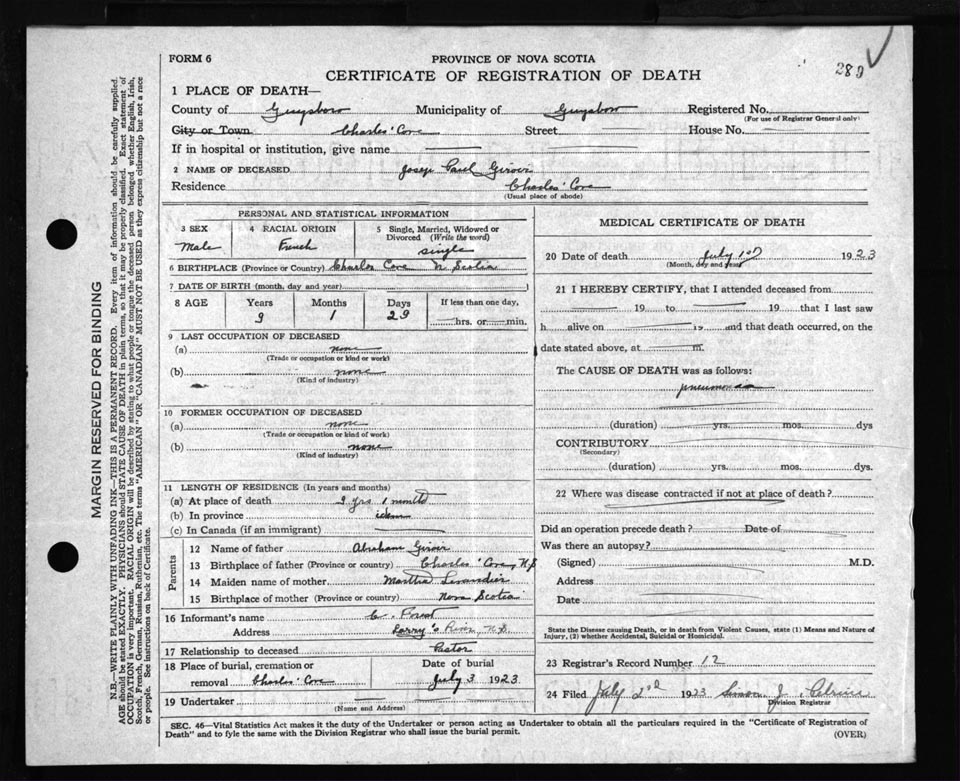 289
FORM 6
PROVINCE OF NOVA SCOTIA
CERTIFICATE OF REGISTRATION OF DEATH
1 PLACE OF DEATH—
County of Guysboro Municipality of Guysboro Registered No.
(For use of Registrar General only)
City or Town Charles' Cove Street House No.
If in hospital or institution, give name
2 NAME OF DECEASED Josep Paul Giroir
Residence Charles' Cove
(Usual place of abode)
PERSONAL AND STATISTICAL INFORMATION
3 SEX 4 RACIAL ORIGIN 5 Single, Married, Widowed or
Divorced (Write the word)
Male French single
6 BIRTHPLACE (Province or Country) Charles Cove N Scotia
7 DATE OF BIRTH (month, day and year)
8 AGE Years Months Days If less than one day,
1 29 hrs. or min.
9 LAST OCCUPATION OF DECEASED
(a) none
(Trade or occupation or kind or work)
(b) none
(Kind of industry)
10 FORMER OCCUPATION OF DECEASED
(a) none
(Trade or occupation or kind of work)
(b) none
(Kind of industry)
11 LENGTH OF RESIDENCE (In years and months)
(a) At place of death yrs 1 month
(b) In province idem
(c) In Canada (if an immigrant)
Parents
12 Name of father Abraham Giroir
13 Birthplace of father (Province or country) Charles' Cove, N.S
14 Maiden name of mother Martha
15 Birthplace of mother (Province or country) Nova Scotia
16 Informant's name C. Forest
Address Larry's River, N.S.
17 Relationship to deceased Pastor
18 Place of burial, cremation or Date of burial
removal Charles' Cove July 3 1923
19 Undertaker
(Name and Address)
MEDICAL CERTIFICATE OF DEATH
20 Date of death July 1st 1923
(Month, day and year)
21 I HEREBY CERTIFY, that I attended deceased from
19 to 19 that I last saw
h alive on 19 and that death occurred, on the
date stated above, at m.
The CAUSE OF DEATH was as follows:
pneumonia
(duration) yrs. mos. dys
CONTRIBUTORY
(Secondary)
(duration) yrs. mos. dys.
22 Where was disease contracted if not at place of death?
Did an operation precede death? Date of
Was there an autopsy?
(Signed) M.D.
Address
Date
State the Disease causing Death, or in death from Violent Causes, state (1) Means and Nature of
Injury, (2) whether Accidental, Suicidal or Homicidal.
23 Registrar's Record Number 12
24 Filed July 2nd 1923 Simon J.
Division Registrar
SEC. 46—Vital Statistics Act makes it the duty of the Undertaker or person acting as Undertaker to obtain all the particulars required in the "Certificate of Registration of
Death" and to fyle the same with the Division Registrar who shall issue the burial permit.
(OVER)
MARGIN RESERVED FOR BINDING
N.B.—WRITE PLAINLY WITH UNFADING INK—THIS IS A PERMANENT RECORD. Every item of information should be carefully supplied.
AGE should be stated EXACTLY. PHYSICIANS should STATE CAUSE OF DEATH in plain terms, so that it may be properly classified. Exact statement of
OCCUPATION is very important. RACIAL ORIGIN will be described by stating to what people or tongue the deceased person belonged whether English, Irish,
Scotch, French, German, Russian, Ruthenian, etc. The terms "AMERICAN" OR "CANADIAN" MUST NOT BE USED as they express citizenship but not a race
or people. See instructions on back of Certificate.